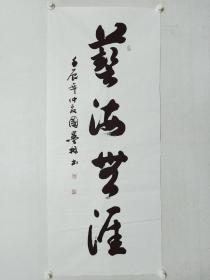 藝海無涯
壬辰年仲夏國